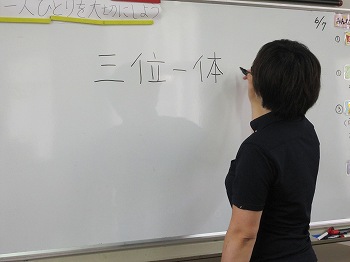 一人ひとりを大切にしよう
三位一体
6/7
①